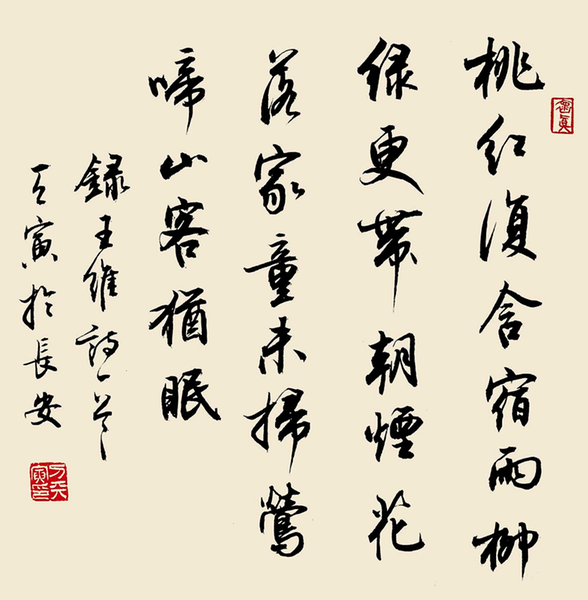 桃红復含宿雨柳
绿更带朝煙花
落家童未掃鶯
啼山客猶眠
録王维诗一首
寅於長安